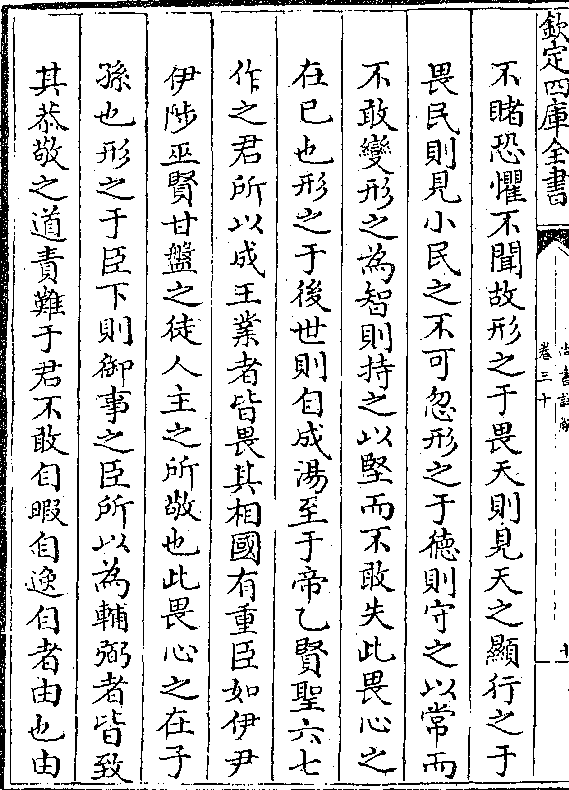 欽定四庫全書
尚書詳解
卷三十
不睹恐懼不聞故形之于畏天則見天之顯行之于
畏民則見小民之不可忽形之于德則守之以常而
不敢變形之為智則持之以堅而不敢失此畏心之
在已也形之于後世則自成湯至于帝乙賢聖六七
作之君所以成王業者皆畏其相國有重臣如伊尹
伊陟巫賢甘盤之徒人主之所敬也此畏心之在子
孫也形之于臣下則御事之臣所以為輔弼者皆致
其恭敬之道責難于君不敢自暇自逸自者由也由